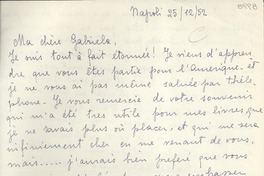 8998
Napoli 25/12/52
Ma chère Gabriela,
Je suis tout à fait étonnée! Je viens d'appren
dre que vous êtes partie pour l'Amerique et
je ne vous ai pas même saluée par thélé-
phone. Je vous remercie de votre souvenir
qui m'a été tres utile pour mes livres que
je ne savais plus où placer, et qui me sera
infiniement cher en me venant de vous,
mais..... j'aurais bien preferé que vous